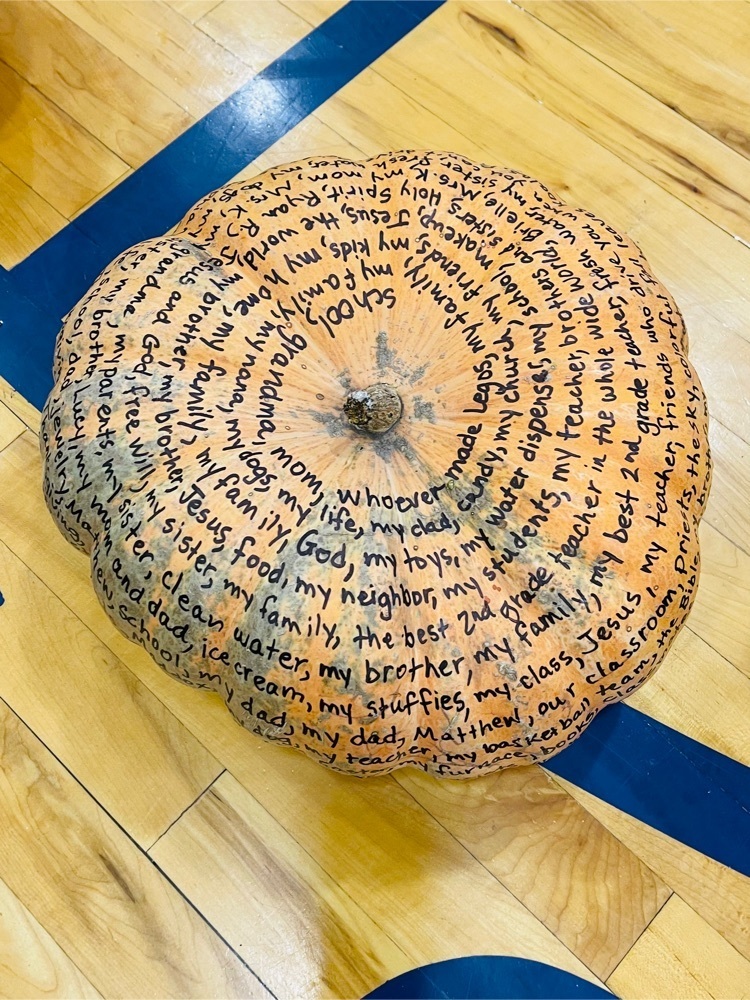 school, grandma, mom, whoever made Legos, my family,
my family, my kids, my home, my nana, my dogs, my life, my dad, candy, my church, my friends,
makeup, Jesus, the world, my family, my family, God, my toys, my water dispenser, school,
sisters, Holy Spirit, Ryan R., Jesus, my brother, my brother, Jesus, food, my neighbor, my students, my teacher, brothers and
my mom, Mrs. K, grandma, Jesus and God, free will, my sister, my family, the best 2nd grade teacher in the whole wide world,
elle, Mrs. K, my parents, my sister, clean water, my brother, my family, my best 2nd grade teacher, fresh water,
my sister, my brother, Lucy, my mom and dad, ice cream, my stuffies, my class, Jesus, my teacher, friends who
school, dad, jewelry, school, my dad, my dad, Matthew, our classroom, Priests, the sky,
my teacher, my basketball team, the Bible, my
my furnace, books,